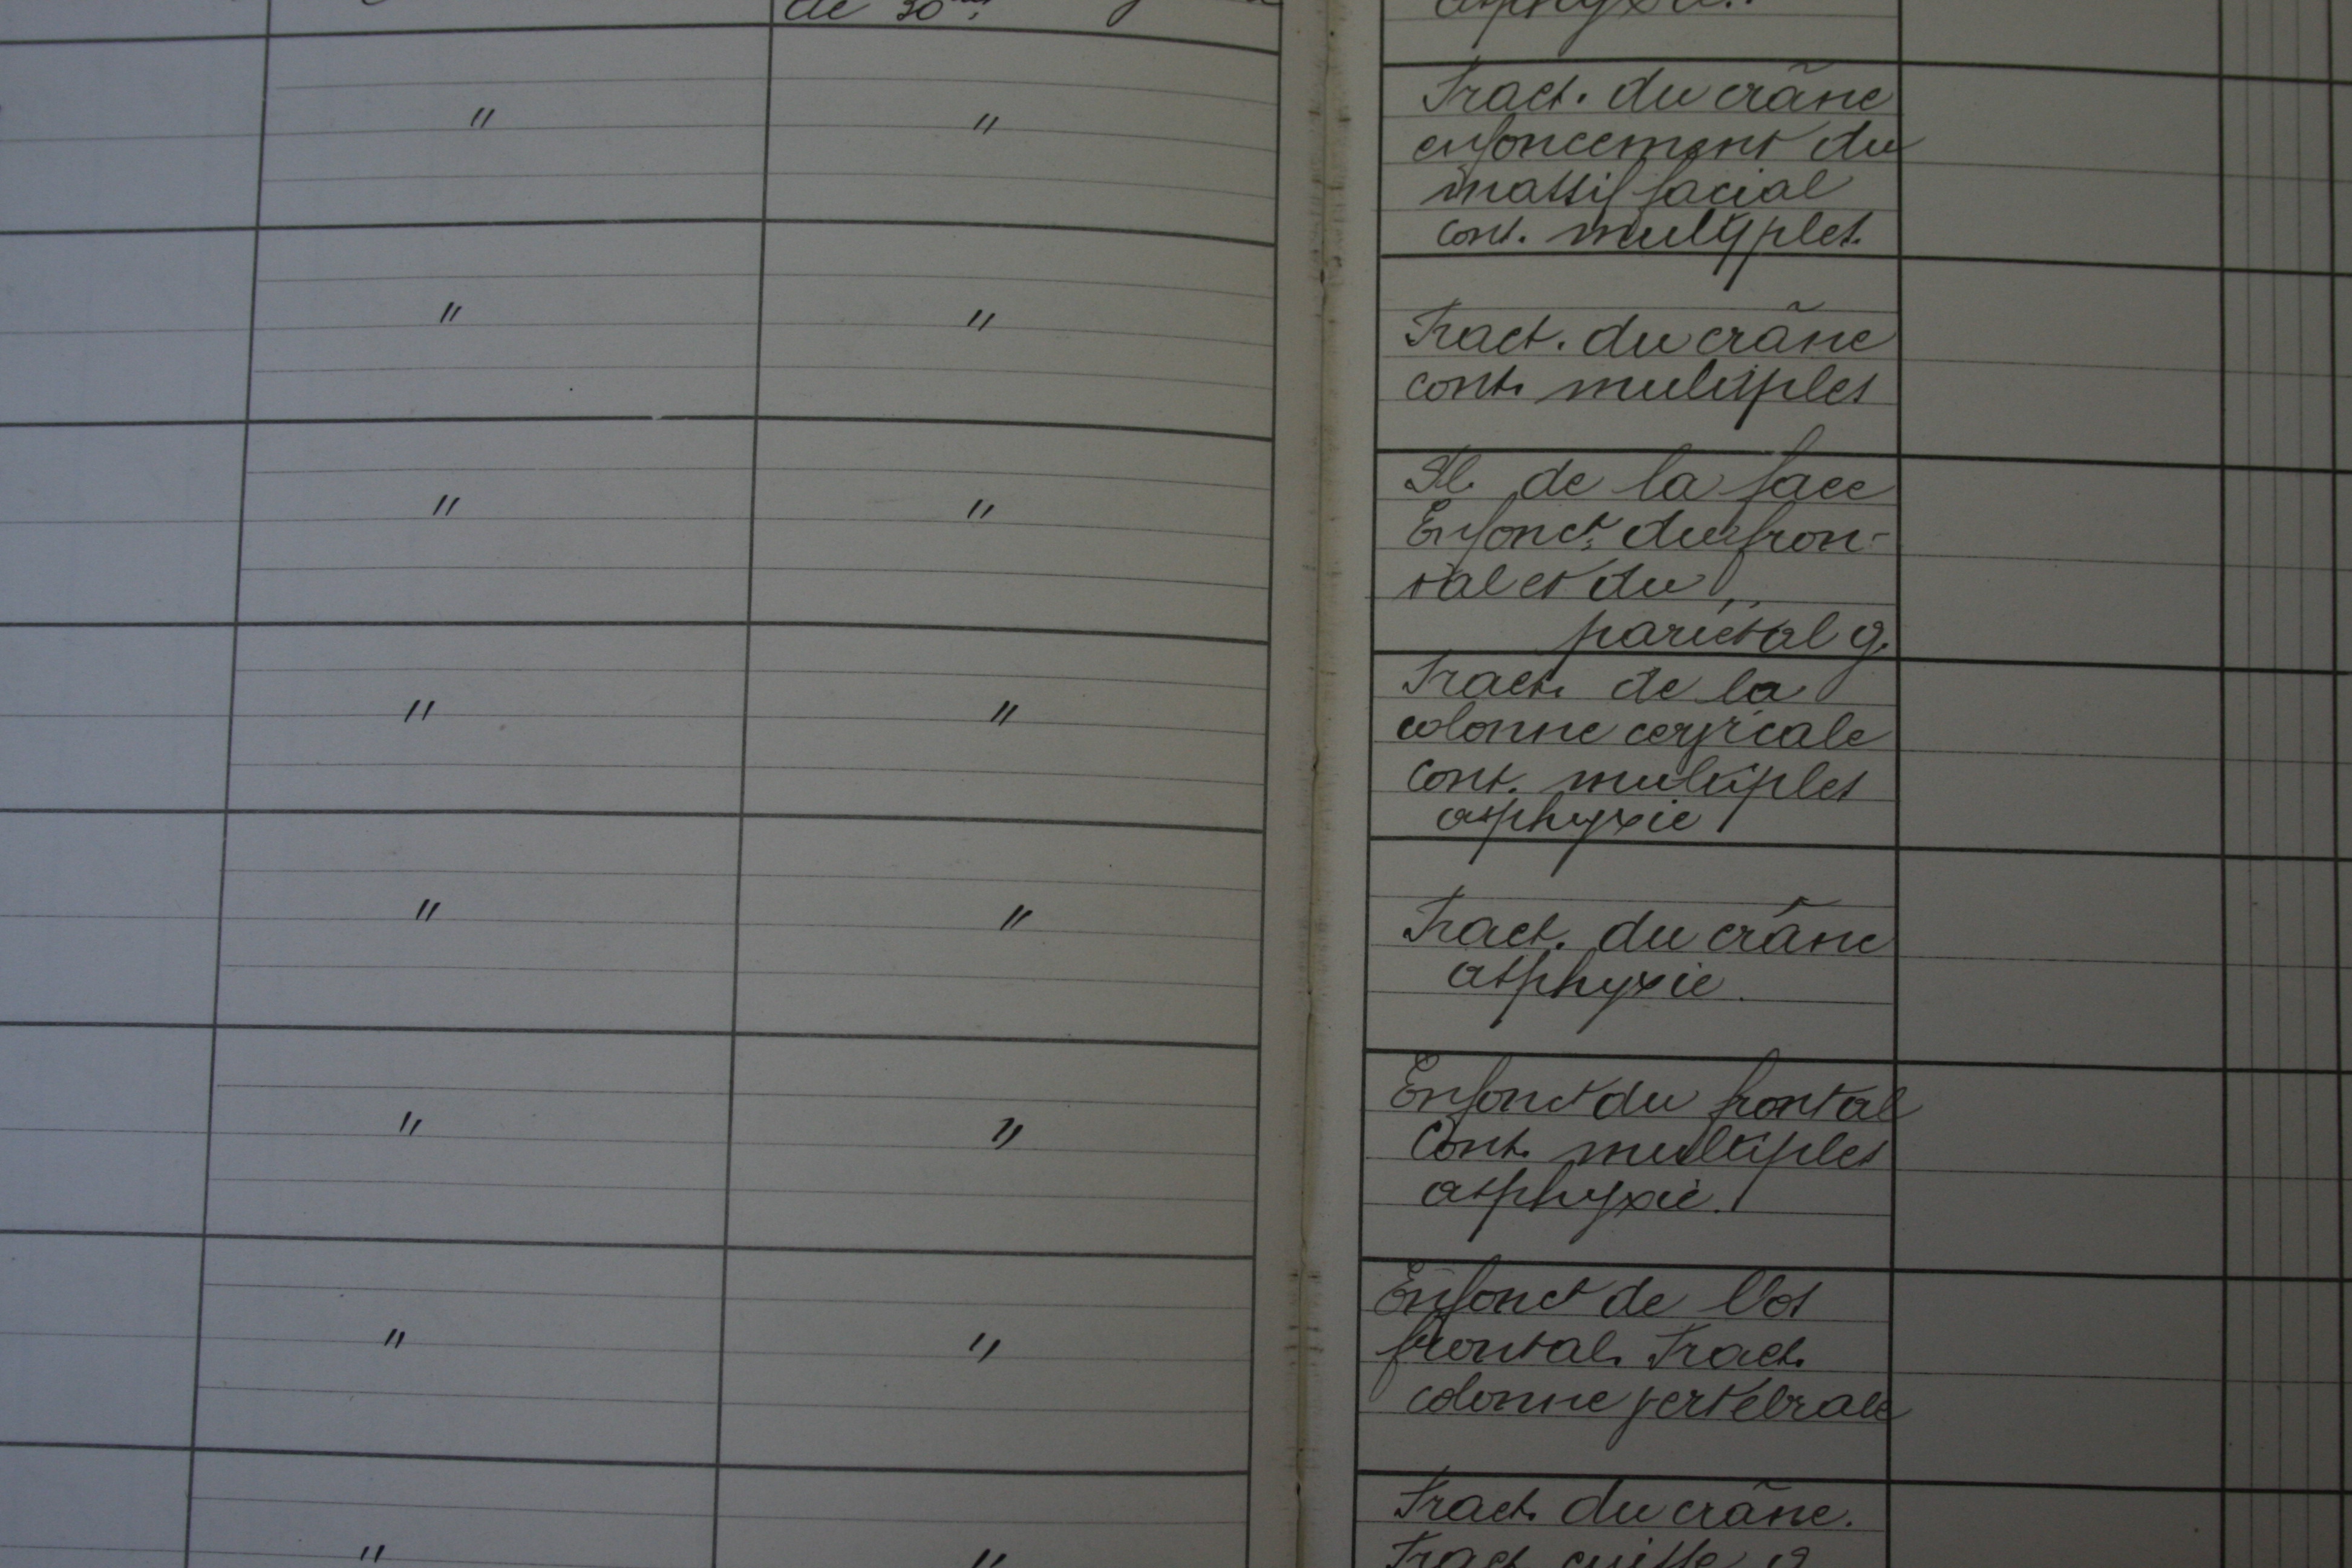 de 30
asphyxie.
" " Fract. du crâne
enfoncement du
massif facial
cont. multiples.
" " Fract. du crâne
cont. multiples
" " Pl. de la face
Enfonct. du fron-
tal et du
pariétal g.
" " Fract. de la
colonne cervicale
cont. multiples
asphyxie
" " Fract. du crâne
asphyxie.
" " Enfonct du frontal
Cont. multiples
asphyxie.
" " Enfonct de l'os
frontal. Fract.
colonne vertébrale
" " Fract. du crâne.
Fract. cuisse g